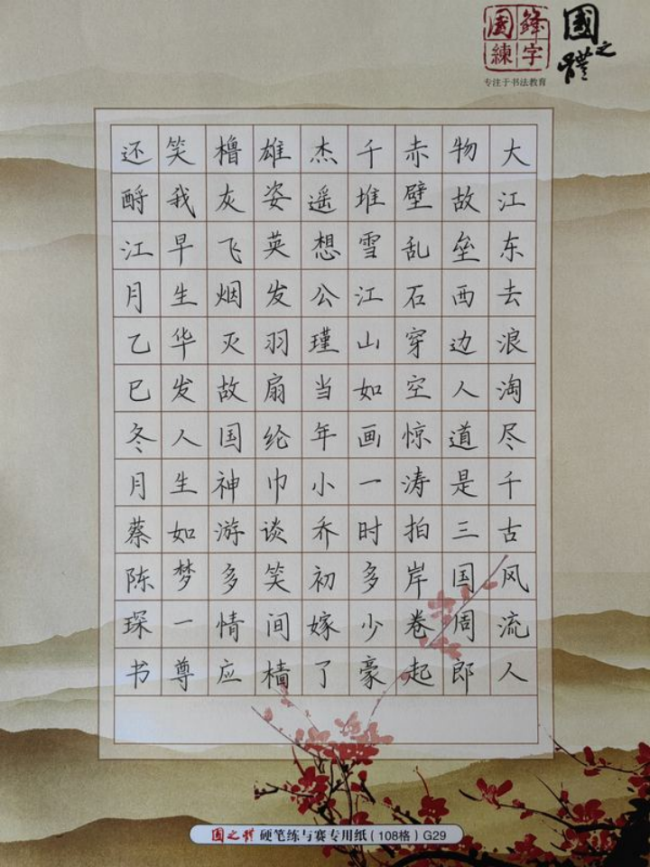 国鋒
練字
國之體
专注于书法教育
大江东去浪淘尽千古风流人
物故垒西边人道是三国周郎
赤壁乱石穿空惊涛拍岸卷起
千堆雪江山如画一时多少豪
杰遥想公瑾当年小乔初嫁了
雄姿英发羽扇纶巾谈笑间樯
橹灰飞烟灭故国神游多情应
笑我早生华发人生如梦一尊
还酹江月乙巳冬月蔡陈琛书
國之體 硬笔练与赛专用纸(108格)G29